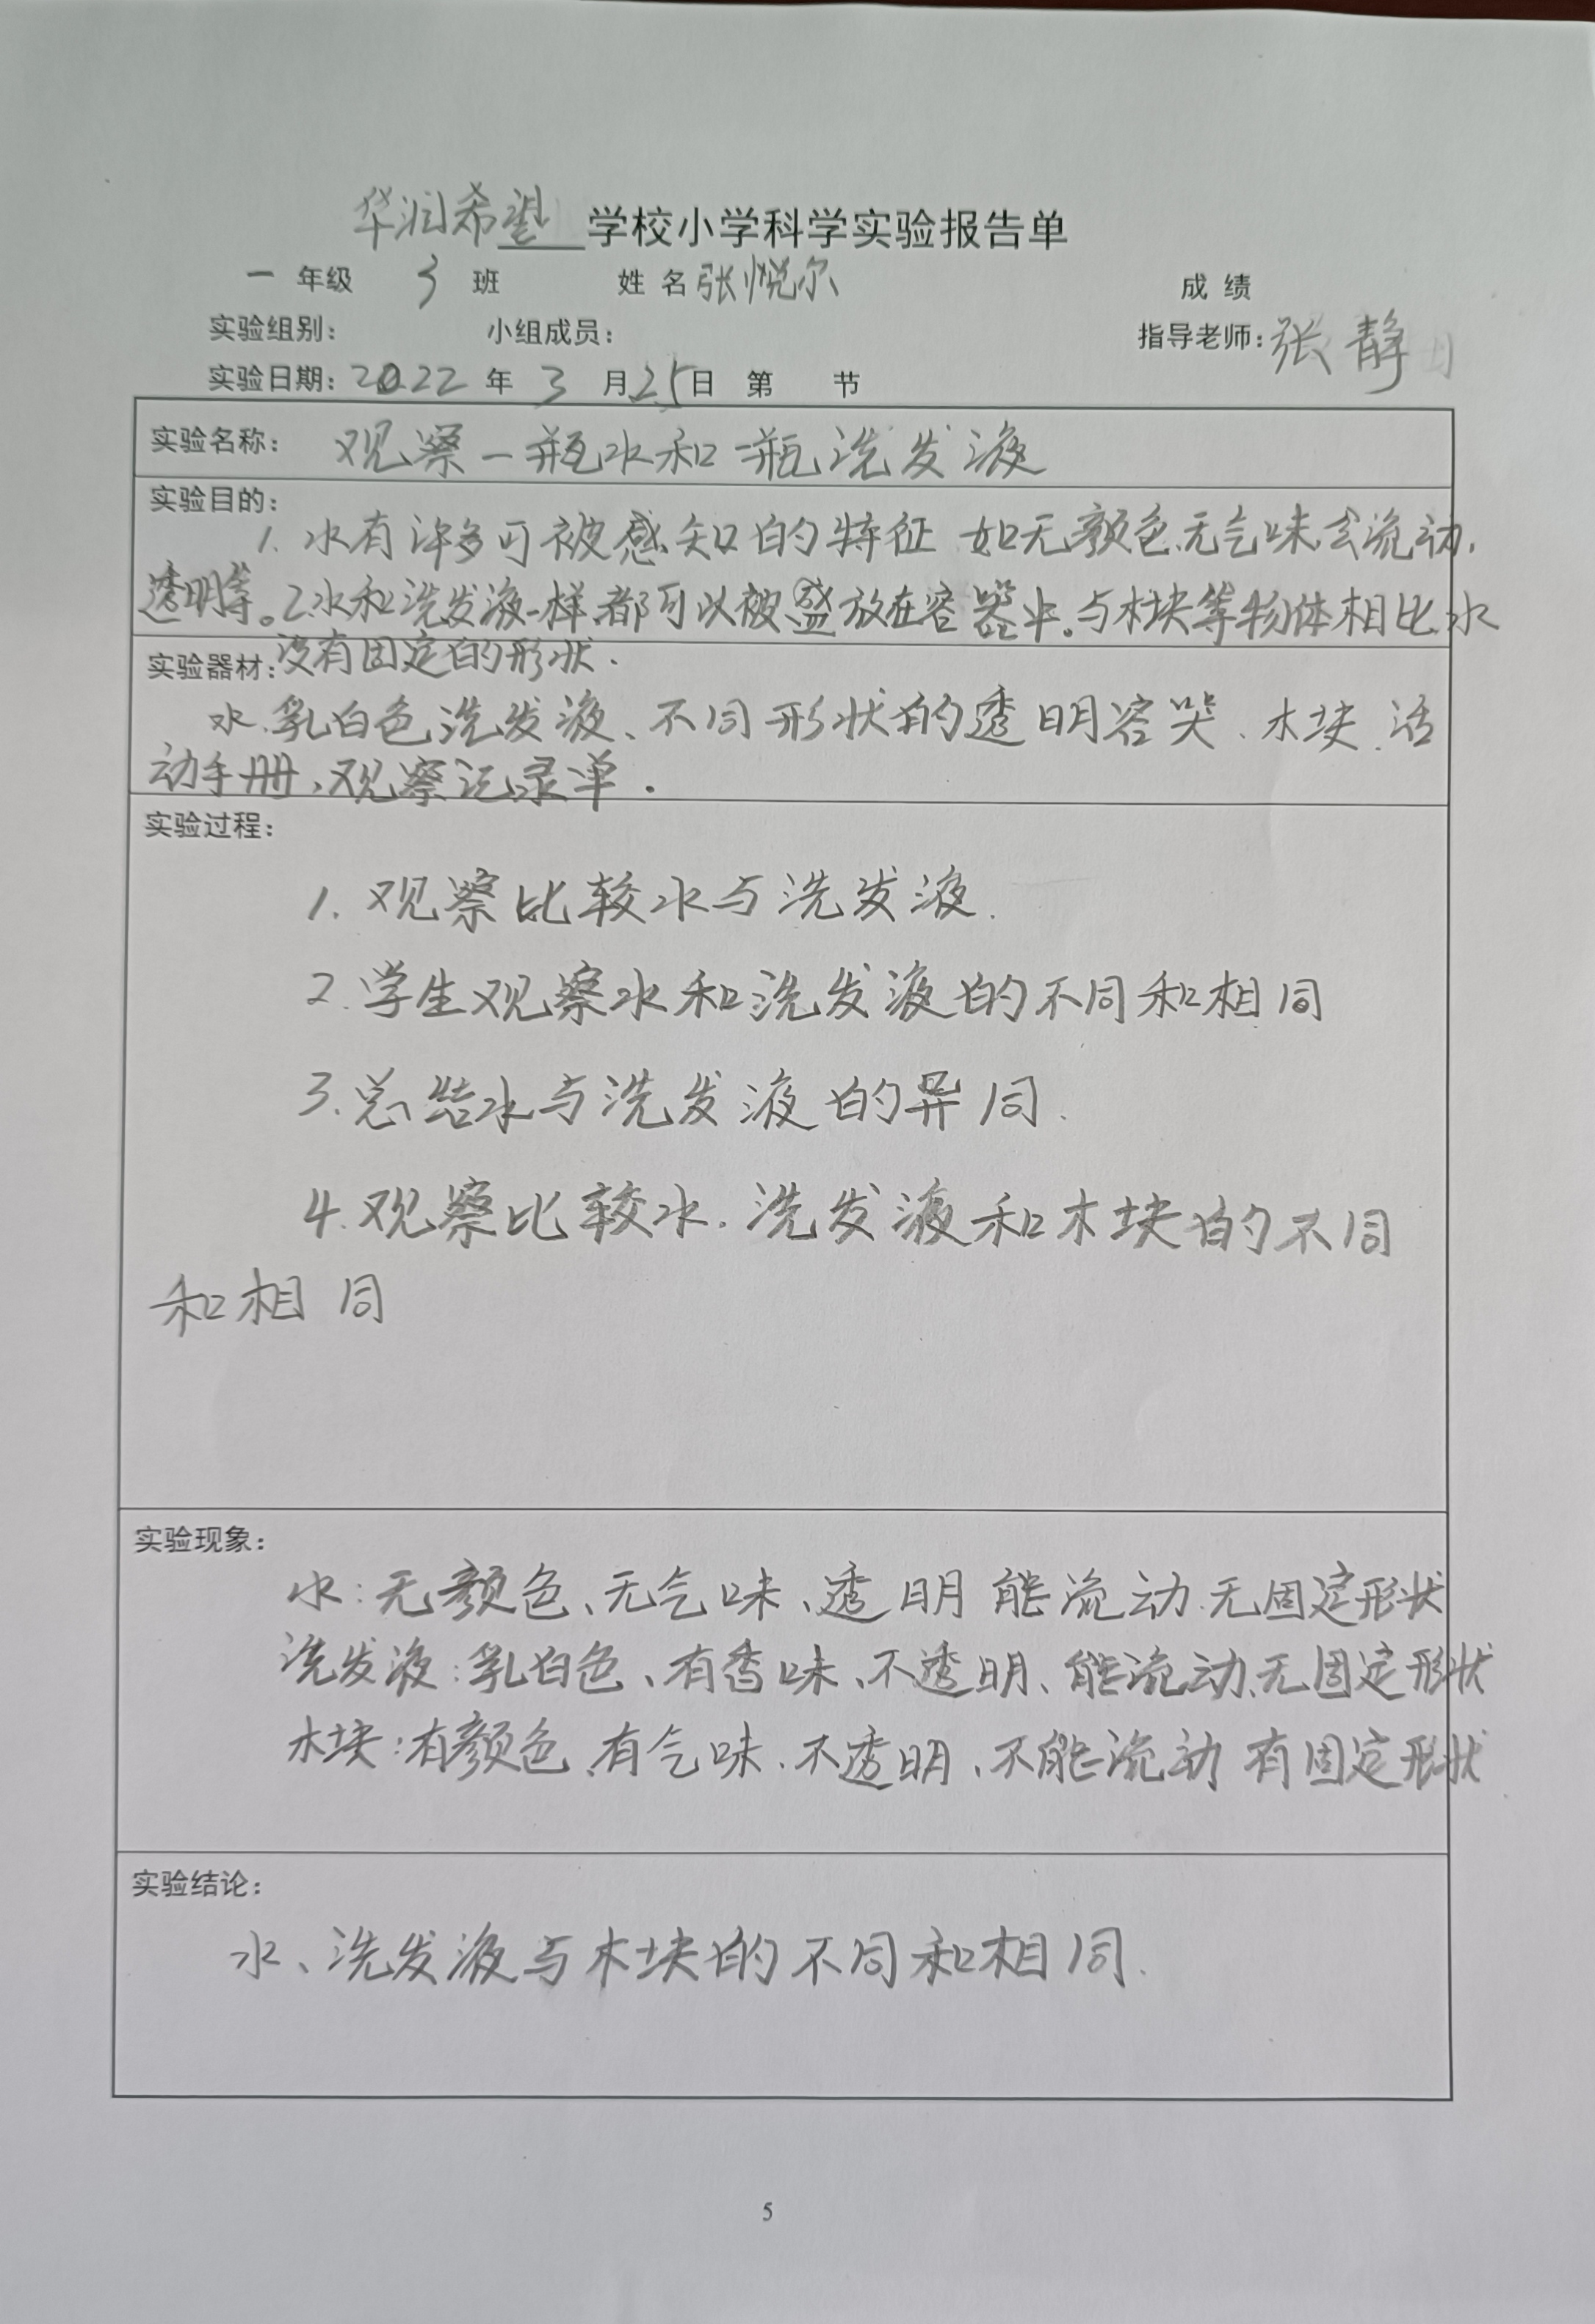 华润希望 学校小学科学实验报告单
一 年级 3 班 姓 名 张悦尔 成 绩
实验组别： 小组成员： 指导老师：张静
实验日期：2022 年 3 月 25 日 第 节
实验名称： 观察一瓶水和一瓶洗发液
实验目的：
1. 水有许多可被感知的特征 如无颜色、无气味、会流动、
透明等。2.水和洗发液一样，都可以被盛放在容器中。与木块等物体相比，水
没有固定的形状.
实验器材：
水、乳白色洗发液、不同形状的透明容器、木块、活
动手册、观察记录单.
实验过程：
1. 观察比较水与洗发液.
2. 学生观察水和洗发液的不同和相同
3. 总结水与洗发液的异同.
4. 观察比较水.洗发液和木块的不同
和相同
实验现象：
水：无颜色、无气味、透明 能流动.无固定形状
洗发液：乳白色、有香味、不透明、能流动、无固定形状
木块：有颜色、有气味、不透明、不能流动 有固定形状
实验结论：
水、洗发液与木块的不同和相同.
5